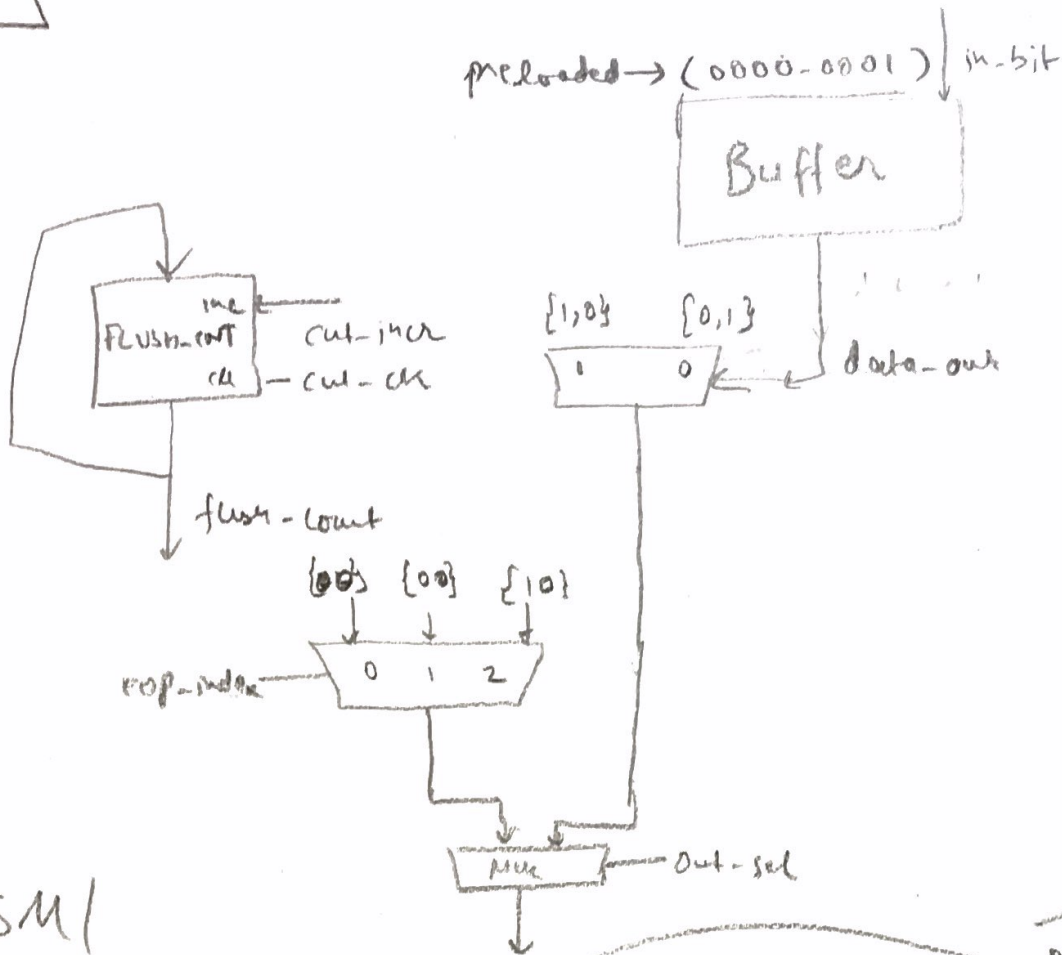 preloaded → (0000-0001) in-bit
Buffer
inc
FLUSH-CNT cnt-incr
clk cnt-clk
{1,0} {0,1}
1 0 data-out
flush-count
{00} {00} {10}
eop-index 0 1 2
Mux out-sel